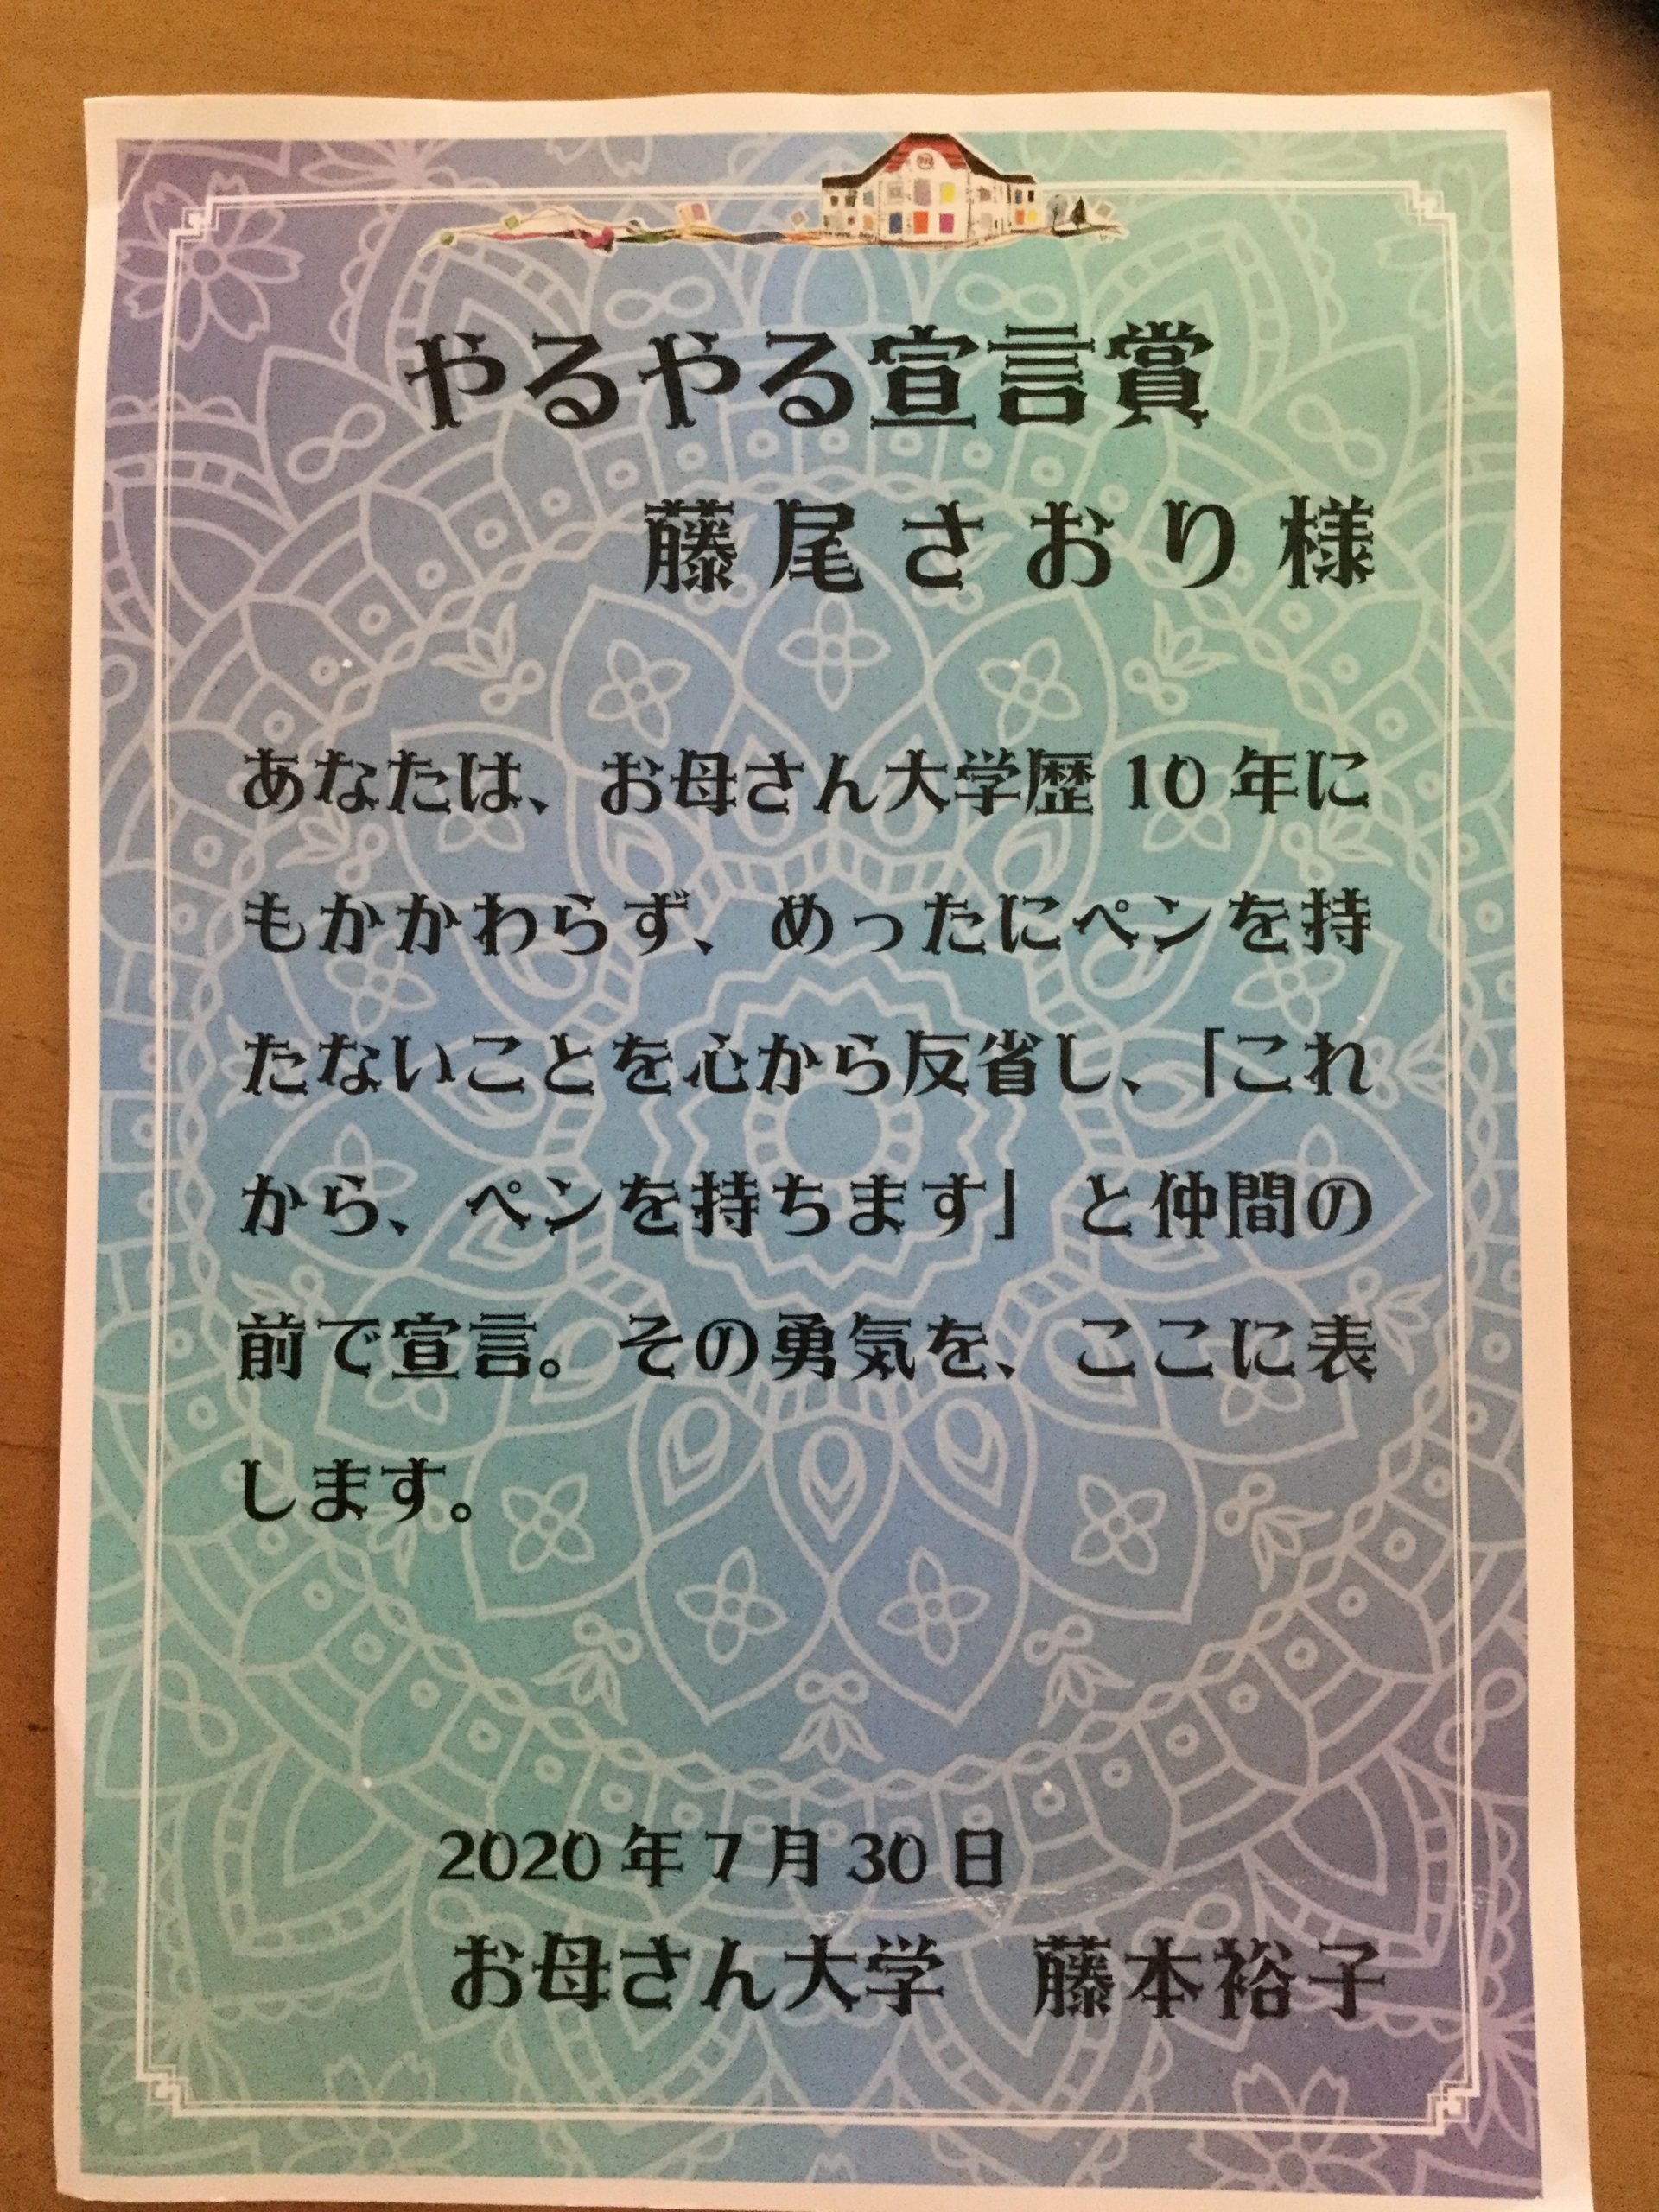 やるやる宣言賞
藤尾さおり様
あなたは、お母さん大学歴10年に
もかかわらず、めったにペンを持
たないことを心から反省し、「これ
から、ペンを持ちます」と仲間の
前で宣言。その勇気を、ここに表
します。
2020年7月30日
お母さん大学　藤本裕子